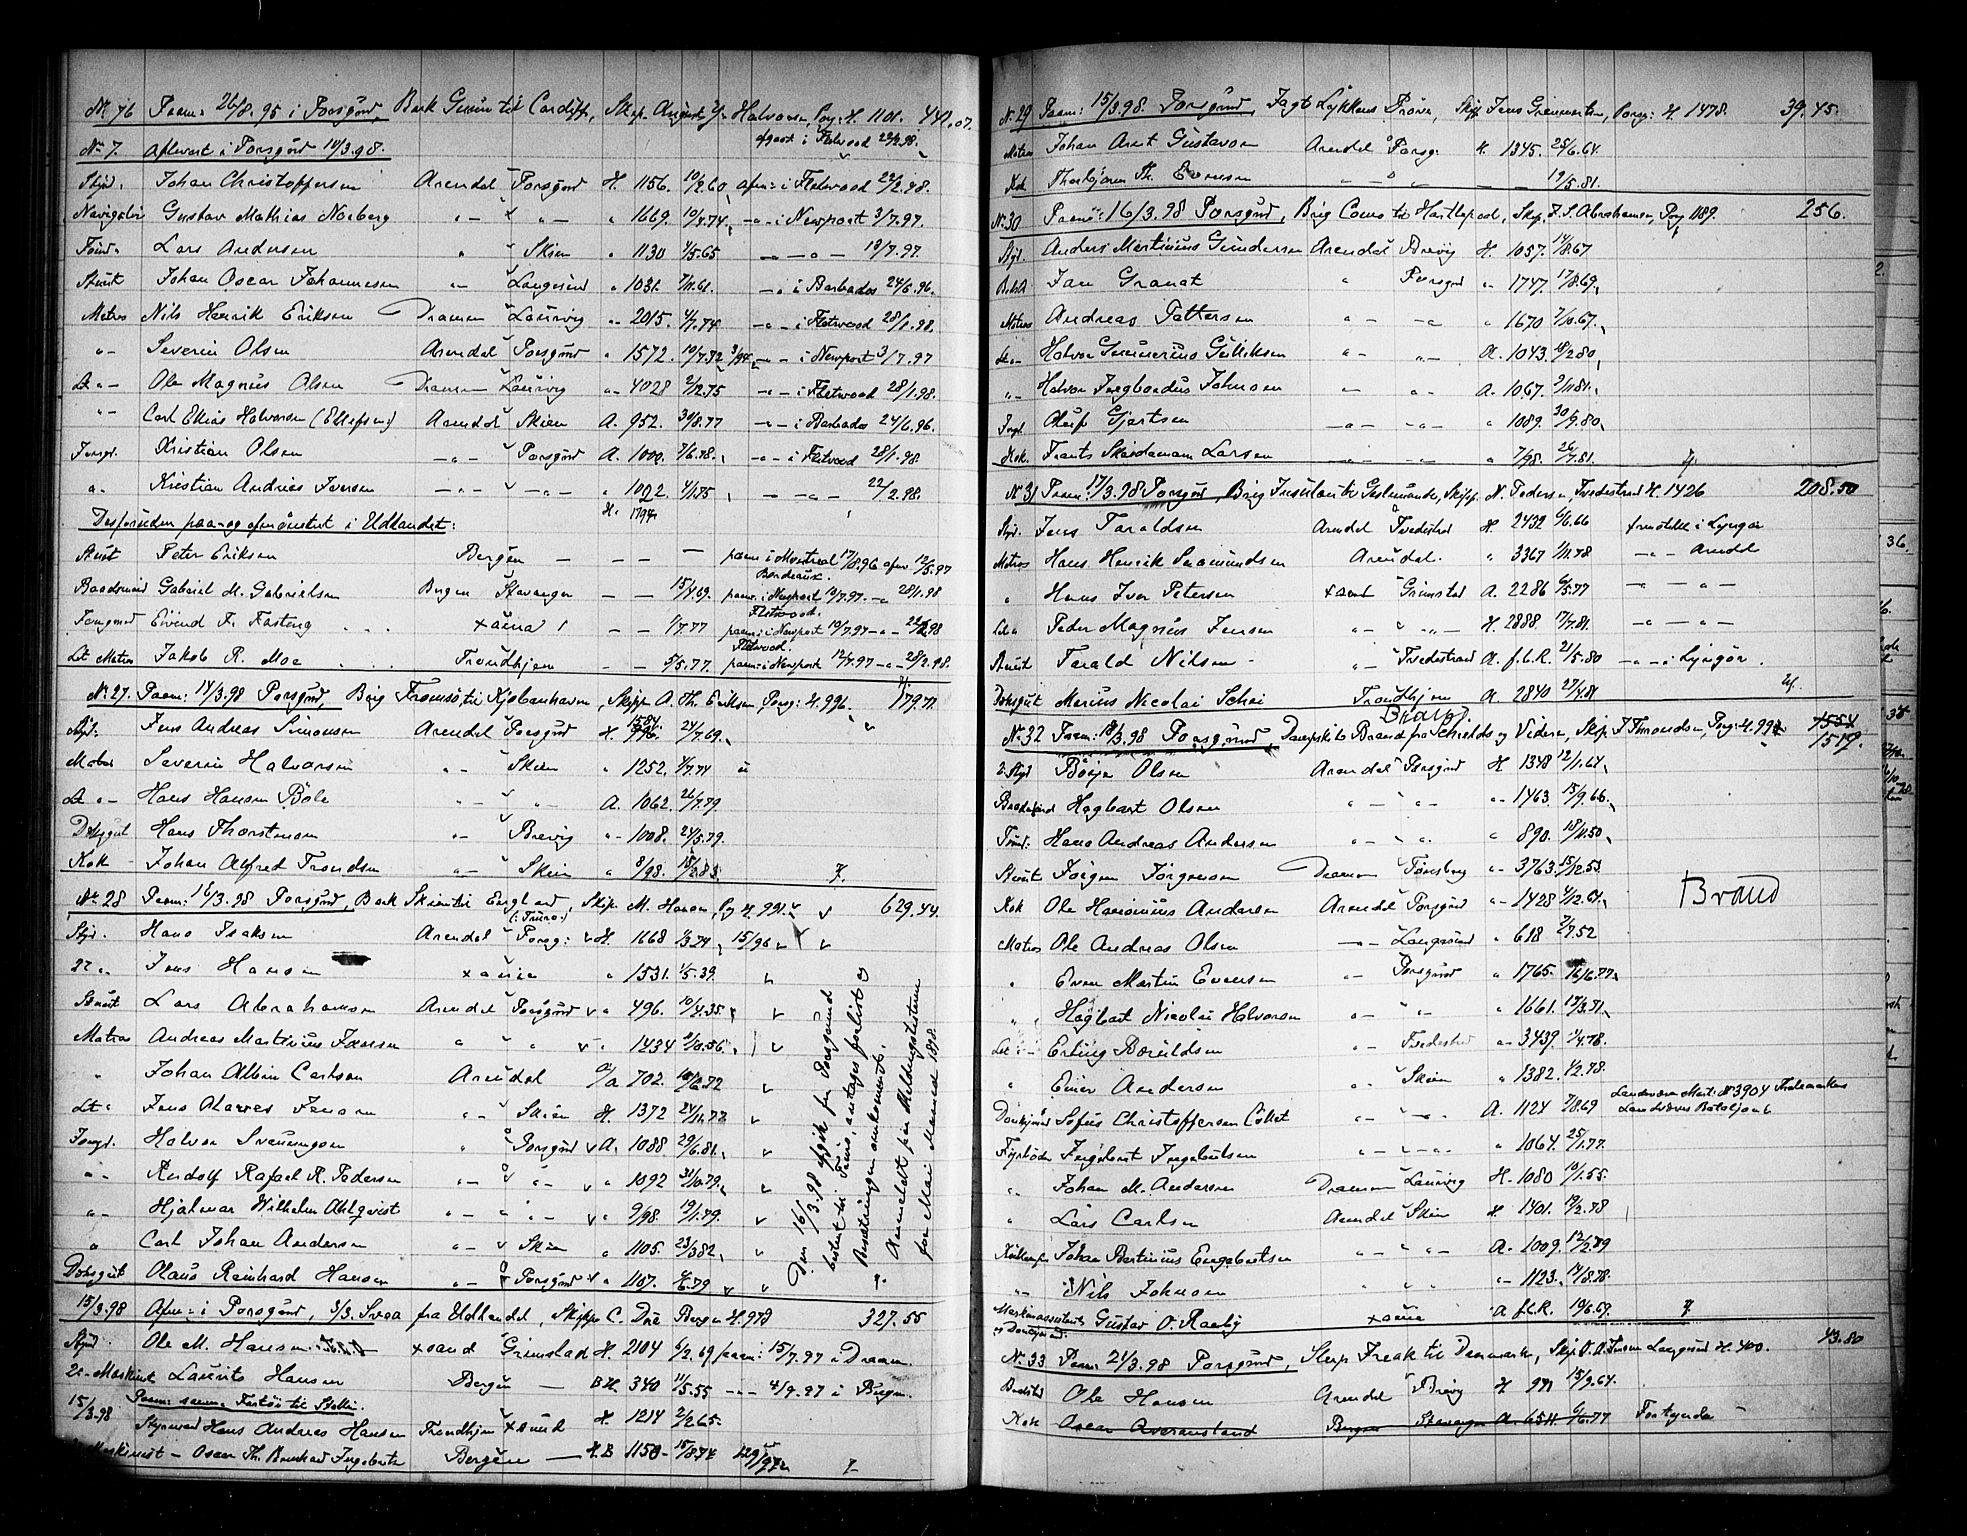 Nº 76 Paam: 26/8.95 i Porsgrund, Bark til Cardiff, Skip. August Halvorsen, Pors: H. 1101. 441.07
Nº 7. Afleveret i Porsgrund 14/3.98. i Fleetwood 22/2.98.
Styd. Johan Christoffersen Arendal Porsgrund H. 1156. 10/2.60 afm: i Fleetwood 22/2.98.
Gustav Mathias Norberg " - " - " 1669. 10/4.74. - " - i Newport 3/7.97.
Tømd. Lars Andersen " Skien " 1130 4/5.65 - " - " - 13/7.97.
Stuert Johan Oscar Johannesen " - Langesund " 1031. 7/11.61. - " - i Barbados 24/6.96.
Matros Nils Henrik Eriksen Drammen Laurvig " 2015. 4/7.74 - " - i Fleetwood 28/1.98.
" - Severin Olsen Arendal Porsgrund " 1572. 10/7.72 - " - i Newport 3/7.97
Lt " - Ole Magnus Olsen Drammen Laurvig " 4028 2/12.75 - " - i Fleetwood 28/1.98.
" - Carl Elias Halvorsen (Ellefsen) Arendal Skien A. 952. 30/8.77 - " - i Barbados 24/6.96.
Jungd. Kristian Olsen - " - Porsgrund A. 1000. 7/6.78. - " - i Fleetwood 28/1.98
" Kristian Andreas Iversen - " - - " - " 1022. 4/1.75 - " - 22/2.98.
H. 1794.
Desforuden paa- og afmønstret i Udlandet:
Stuert Peter Eriksen Bergen — — — paam: i Montreal 17/8.96 afm: 12/5.97
Bordeaux.
Baadsmand Gabriel M. Gabrielsen Bergen Stavanger — — 15/4.69. paam: i Newport 10/7.97 - " - 28/1.98
Fleetwood.
Jungmand Eivind F. Fasting . . . xania — — 9/7.77 paam: i Newport 10/7.97 - " - 22/2.98
Fleetwood.
Lt Matros Jakob R. Moe . . . Trondhjem — 5/5.77. paam: i Newport 12/7.97 - " - 28/2.98.
Nº 27. Paam: 14/3.98 Porsgrund, Brig Tromsø til Kjøbenhavn, Skipp A. Th. Eriksen, Porsg: H. 996. 179.71
Styd. Jens Andreas Simonsen Arendal Porsgrund H. 1584. 24/7.69.
Matros Severin Halvorsen " - Skien " 1252. 4/7.74
Lt " - Hans Hansen Bøle " - " - A. 1062. 26/7.79.
Dæksgut Hans Thorstensen " - Brevig " - 1008. 24/5.79.
Kok Johan Alfred Trondsen " - Skien " 8/98. 18/2.83.
Nº 28 Paam: 16/3.98 Porsgrund, Bark Skien til England, Skip. M. Hansen, Pors H. 991. 629.44.
(: Truro :)
Styd. Hans Isaksen Arendal Porsg: H. 1668 1/3.74 15/96
2d " Jens Hansen xania " 1531. 1/5.39.
Stuert Lars Abrahamsen Arendal Porsgrund " 496. 10/4.35.
Matros Andreas Martinius Isaksen " " " 1434 9/10.56.
" Johan Albin Carlsen Arendal A. 702. 10/6.72
Lt " Jens Marves Jensen " - Skien H. 1372 24/11.77
Jungd. Halvor Svennungsen " Porsgrund A. 1088 29/6.81.
" - Rudolf Rafael R. Pedersen " - " - " 1092 31/10.79.
" - Hjalmar Wilhelm Ahlqvist " - " - " 9/98. 19/1.79.
" Carl Johan Andersen " - Skien " 1105. 23/3.82.
Dæksgut Olaus Reinhard Hansen " - Porsgrund " 1107. 4/6.79
Den 16/3.98 afgik fra Porsgrund
bestemt til Truro, antages forlist og
Besætningen omkommet.
Anmeldt paa Meldingslisterne
for Mai Maaned 1898.
15/3.98 Afm: i Porsgrund, 5/3. Svea fra Udlandet, Skipp C. Due Bergen H. 979 327.55
Styd. Ole M. Hansen xsand Grimstad H. 2104 6/2.69 paam: 15/7.97 i Dram.
2d Maskinist Laurits Hansen Bergen — B H. 340 11/5.55 - " - 4/9.97 i Bergen.
15/3.98 Paam: samme Fartøi til
Styrmand Hans Andreas Hansen Trondhjem xsund H. 1214 2/2.65.
Maskinist — Oscar Th. Bernhard Ingebrikts Bergen — H.B 1150 - 15/8.74
Nº 29 Paam: 15/3.98. Porsgrund, Jagt Lykkens Prøve, Skip Jens Grønvertsen, Porsg: H. 1478. 39.45.
Matros Johan Arnt Gustavsen Arendal Porsg. H. 1345. 28/6.64.
Kok Thorbjørn Th. Evensen " - " - — 19/5.81.
Nº 30 Paam: 16/3.98 Porsgrund, Brig Como til Hartlepool, Skip. J. S. Abrahamsen, Pors 1189. 256.
Styd. Anders Martinius Gundersen Arendal Brevig H. 1057. 14/8.67
Bestd Jan Granat " Porsgrund " - 1747. 17/8.69.
Matros Andreas Pettersen " - - " " 1670 7/10.67.
Lt " - Halvor Gunnerius Gulliksen " - " - A. 1043. 18/2.80.
" - Halvor Ingbordus Johnsen — " - A. 1067. 2/11.81.
Jungd. Oluf Gjertsen — " - - " - " 1089. 30/9.80.
Kok. Frants Skardemann Larsen — " - — " 7/98. 26/7.81.
Nº 31 Paam: 17/3.98 Porsgrund, Brig Insulan til Geestemünde, Skipp. N. Pedersen, Tvedestrand H. 1426 208.50
Styd. Jens Taraldsen Arendal Tvedestrd H. 2432 6/6.66 fremstillet i Lyngør
Matros Hans Henrik Saamundsen Arendal. " 3367 1/11.78 - " - Arendal
" Hans Iver Petersen xsand Grimstad A. 2286 6/5.77 - " - " -
Lt " Peder Magnus Jensen " - " - H. 2888. 17/7.81. - " - " -
Stuert Tarald Nilsen - " - Tvedestrand A. f.l.R. 21/5.80 - " - i Lyngør.
Dæksgut Marius Nicolai Schei Trondhjem A. 2840 27/4.81
Nº 32 Paam: 18/3.98 Porsgrund, Dampskib Brand fra Shields og Videre, Skip. F. Throndsen, Porsg: H. 993 1554
1519.
2. Styd Børje Olsen Arendal Porsgrund H 1348 12/1.64.
Baadsmand Hagbart Olsen " - " - " - 1463. 15/9.66.
Tømd. Hans Andreas Andersen " - " " 890. 18/11.50.
Stuert Jørgen Jørgensen Drammen Tønsberg " - 3763. 15/12.53
Kok Ole Hansinius Andersen Arendal Porsgrund " - 1428 4/12.64. Brand
Matros Ole Andreas Olsen — " - Langesund " 618 2/7.52
" Even Martin Evensen " - Porsgrund " 1765. 16/6.77.
" Hagbart Nicolai Halvorsen " - " - " 1661. 19/3.71.
Lt " - Erling Bærulldsen " - Tvedestrd " - 3439. 1/4.78.
" Einer Andersen " - Skien " 1382. 4/2.78.
Donkymd Sofus Christoffersen Collet " - " - A. 1124 7/8.69 Landværn Mat: Nº 3904 Thelemarkens
Landværns Bataljon 6
Fyrbøder Ingebret Ingebretsen " - " - " 1064. 25/1.77.
" Johan M. Andersen Drammen Laurvig H. 1080 10/1.55.
" Lars Carlsen Arendal Skien H 1401. 19/2.78
Kullemper Johan Bertinius Engebretsen " - " - A. 1009. 12/2.79
" - Nils Johnsen " " " - 1123. 14/8.78.
Maskinassistent Gustav O. Raaby xania A f.l.R. 19/6.69.
og Donkymd.
Nº 33 Paam: 21/3.98 Porsgrund, Slup Freak til Danmark, Skip O. A. Jensen Langesund H. 400. 43.80
Bestd Ole Hansen Arendal Brevig H 991 15/9.64.
Kok Oscar Averamstand Bergen Stavanger A. 6511 6/6.77 Fortynder